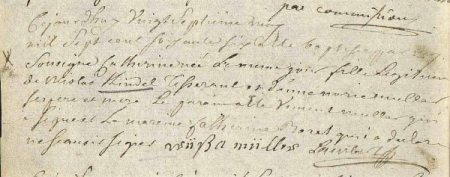 par commission
Cejourdhuy vingt septieme
mil sept cent soixante six a ete baptisée par
Soussigné Catherine née le meme jour fille legitime
de Nicolas Kindel Tisserant et Jeanne marie muller
ses pere et mere Le parain a ete Vincent muller qui
a signé et La mareine Catherine qui a declaré
ne scavoir signer müller